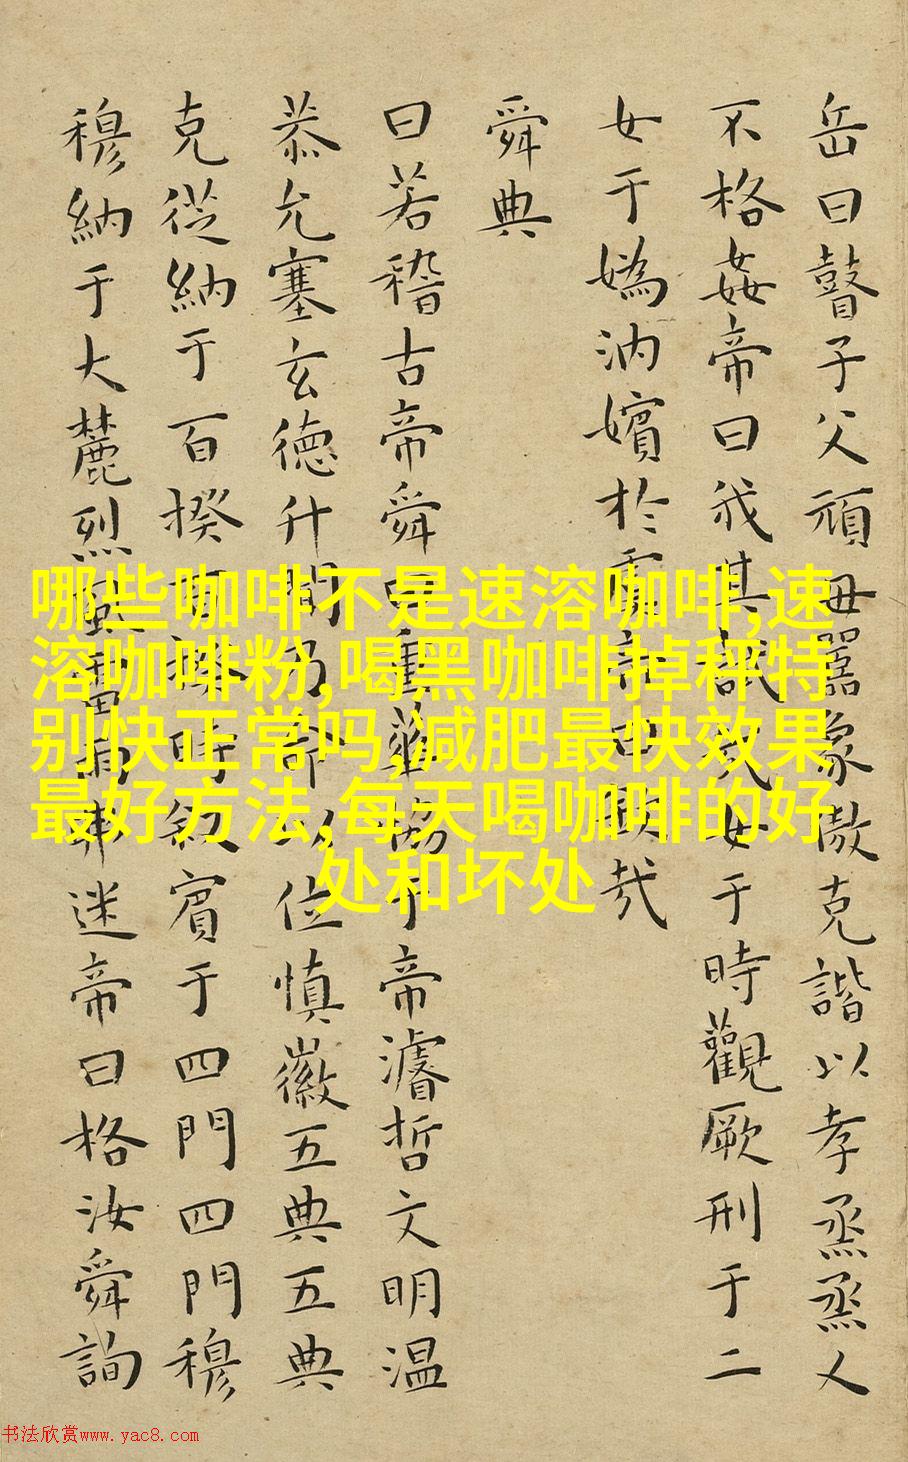 岳曰瞽子父頑母嚚象傲克諧以孝烝烝乂
不格姦帝曰我其試哉女于時觀厥刑于二
女于媯汭嬪於虞帝曰欽哉
舜典
曰若稽古帝舜曰重華協于帝濬哲文明温
恭允塞玄德升聞乃命以位慎徽五典五典
克從納于百揆百揆時敘賓于四門四門穆
穆納于大麓烈風雷雨弗迷帝曰格汝舜詢
哪些咖啡不是速溶咖啡,速
溶咖啡粉,喝黑咖啡掉秤特
别快正常吗,减肥最快效果
最好方法,每天喝咖啡的好
处和坏处
书法欣赏www.yac8.com